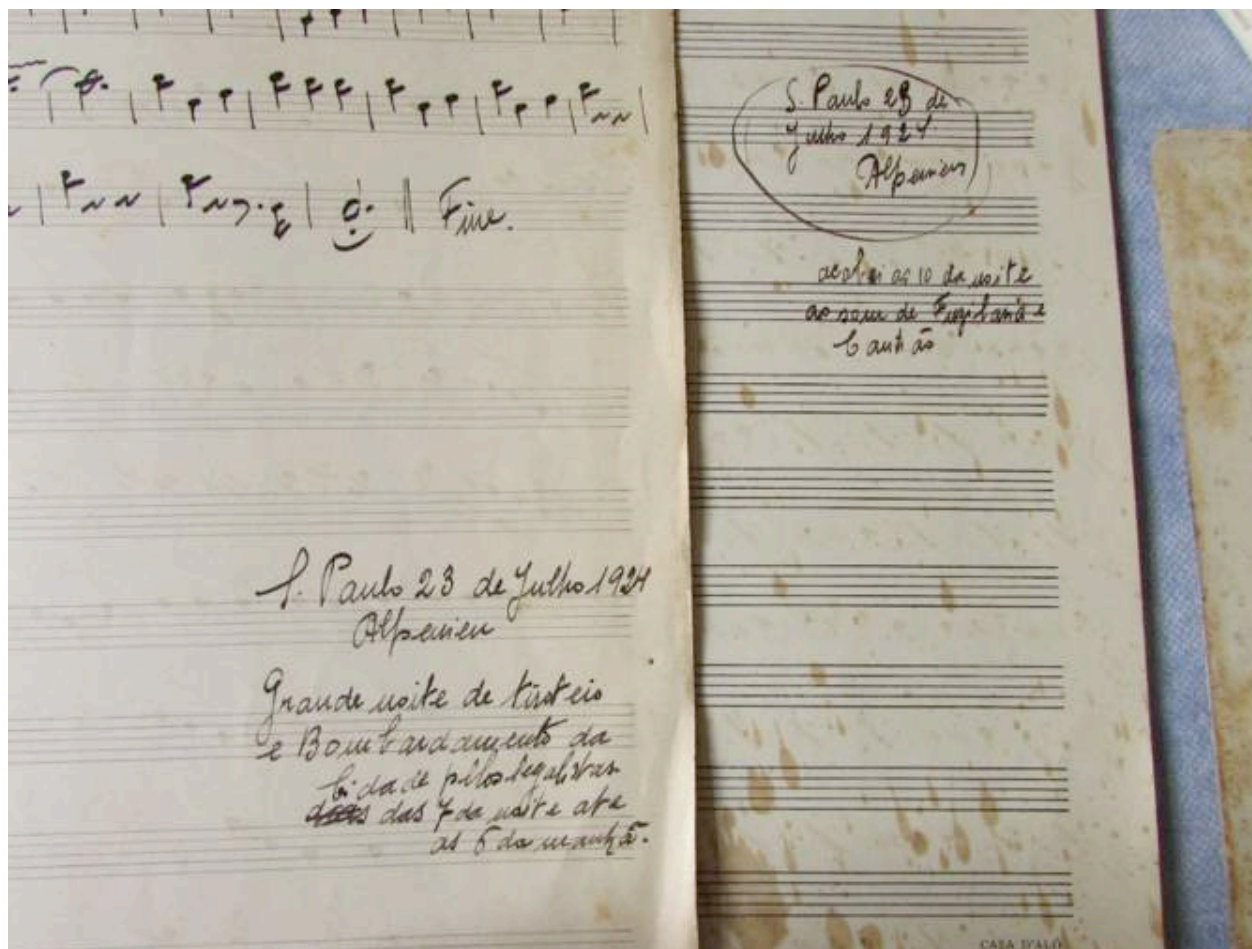 Fine.
S. Paulo 23 de Julho 1924
Grande noite de tiroteio
e Bombardamento da
Cidade pelos legalistas
das 7 da noite ate
as 6 da manhã.
S. Paulo 23 de
Julho 1924
acabei as 10 da noite
ao som de Fuzilaria e
Canhão
CASA D'ALÓ